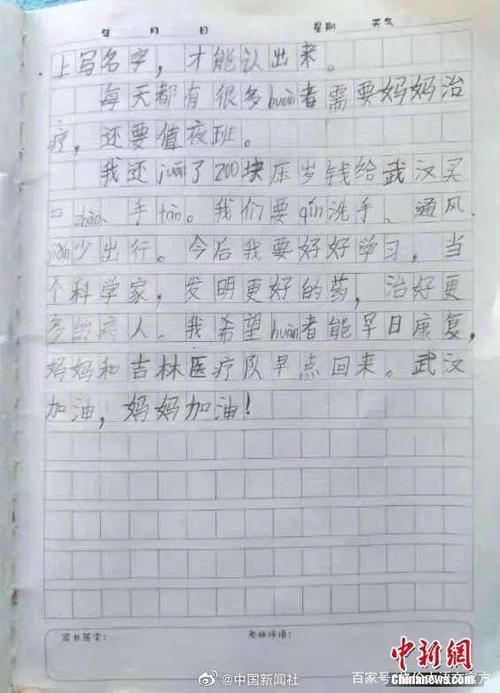 年 月 日 星期 天气
上写名字，才能认出来。
每天都有很多huàn者需要妈妈治
疗，还要值夜班。
我还juān了200块压岁钱给武汉买
口zhào、手tào。我们要qín洗手、通风、
jiǎn少出行。今后我要好好学习，当
个科学家，发明更好的药，治好更
多的病人。我希望huàn者能早日康复，
妈妈和吉林医疗队早点回来。武汉
加油，妈妈加油！
家长签字： 老师评语：
中新网
CHINANEWS.COM
@中国新闻社
百家号
官方